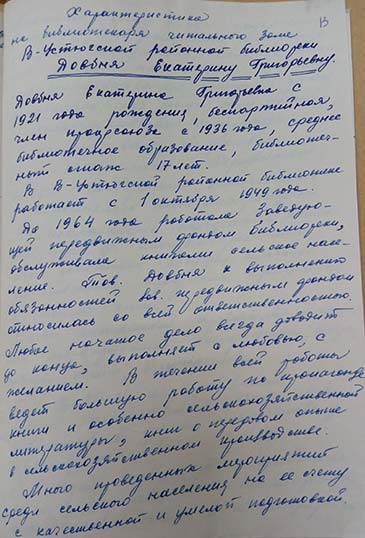 Характеристика
13
на библиотекаря читального зала
В-Устюгской районной библиотеки
Довбня Екатерину Григорьевну.
Довбня Екатерина Григорьевна с
1921 года рождения, беспартийная,
член профсоюза с 1936 года, среднее
библиотечное образование, библиотеч-
ный стаж 17 лет.
В В-Устюгской районной библиотеке
работает с 1 октября 1949 года.
До 1964 года работала Заведую-
щей передвижным фондом библиотеки,
обслуживала книгами сельское насе-
ление. Тов. Довбня к выполнению
обязанностей зав. передвижным фондом
относилась со всей ответственностью.
Любое начатое дело всегда доводит
до конца, выполняет с любовью, с
желанием. В течении всей работы
ведет большую работу по пропаганде
книги и особенно сельскохозяйственной
литературы, книг о передовом опыте
в сельскохозяйственном производстве.
Много проведенных мероприятий
среди сельского населения на ее счету
с качественной и умелой подготовкой.